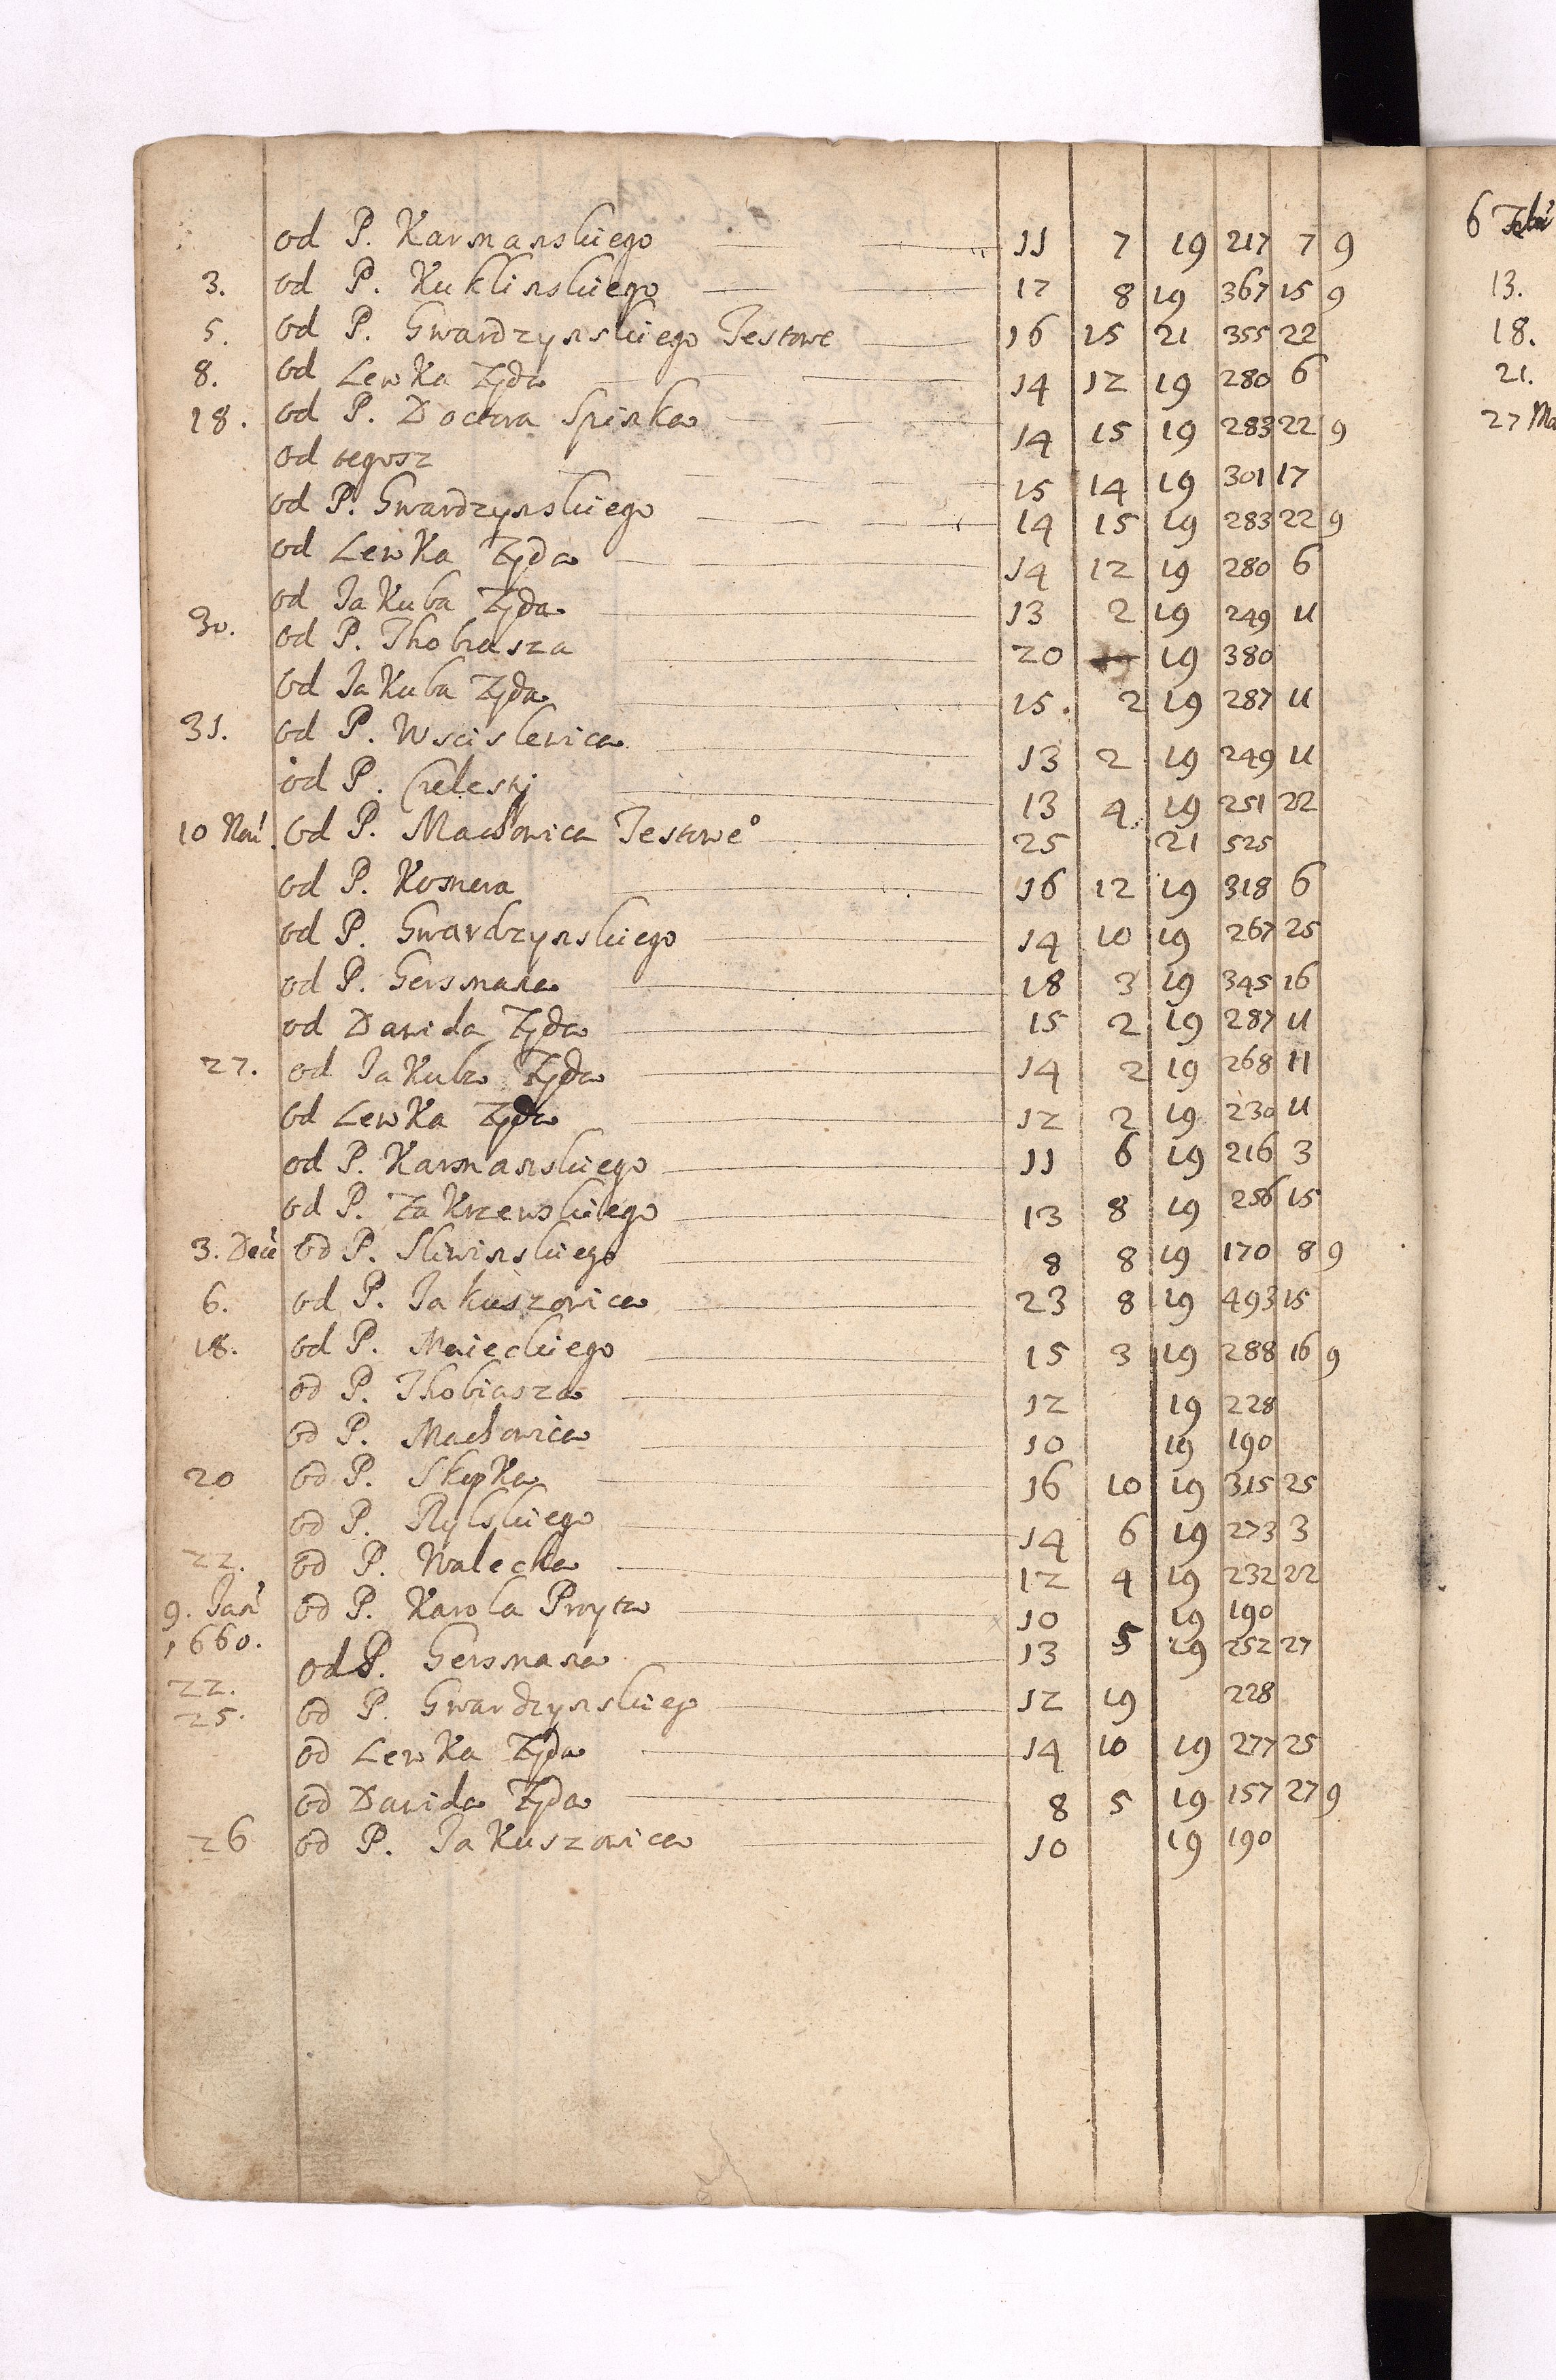 od P. Karmanskiego 11 7 19 217 7 9
3. od P. Kuklinskiego 17 8 19 367 15 9
5. od P. Gwardzynskiego Testowe 16 15 21 355 22
8. od Lewka Zyda 14 12 19 280 6
18. od P. Doctora Spinka 14 15 19 283 22 9
od tegosz 15 14 19 301 17
od P. Gwardzynskiego 14 15 19 283 22 9
od Lewka Zyda 14 12 19 280 6
od Jakuba Zyda 13 2 19 249 11
30. od P. Thobiasza 20 19 380
od Jakuba Zyda 15. 2 19 287 11
31. od P. Wscislewica 13 2 19 249 11
od P. Celesty 13 4 19 251 22
10 Nou. od P. Machowica Testowe° 25 21 525
od P. Kosnera 16 12 19 318 6
od P. Gwardzynskiego 14 10 19 267 25
od P. Gersmana 18 3 19 345 16
od Dawida Zyda 15 2 19 287 11
27. od Jakuba Zyda 14 2 19 268 11
od Lewka Zyda 12 2 19 230 11
od P. Karmanskiego 11 6 19 216 3
od P. Zakrzewskiego 13 8 19 256 15
3. Dece od P. Sliwinskiego 8 8 19 170 8 9
6. od P. Jakuszowica 23 8 19 493 15
18. od P. Maieckiego 15 3 19 288 16 9
od P. Thobiasza 12 19 228
od P. Machowica 10 19 190
20 od P. Skopka 16 10 19 315 25
od P. Rylskiego 14 6 19 273 3
22. od P. Walecka 12 4 19 232 22
9. Jan od P. Karola Proyta 10 19 190
1660. od P. Gersmana 13 5 19 252 27
22.
25. od P. Gwardzynskiego 12 19 228
od Lewka Zyda 14 10 19 277 25
od Dawida Zyda 8 5 19 157 27 9
26 od P. Jakuszowica 10 19 190
6 Feb
13.
18.
21.
27 Ma